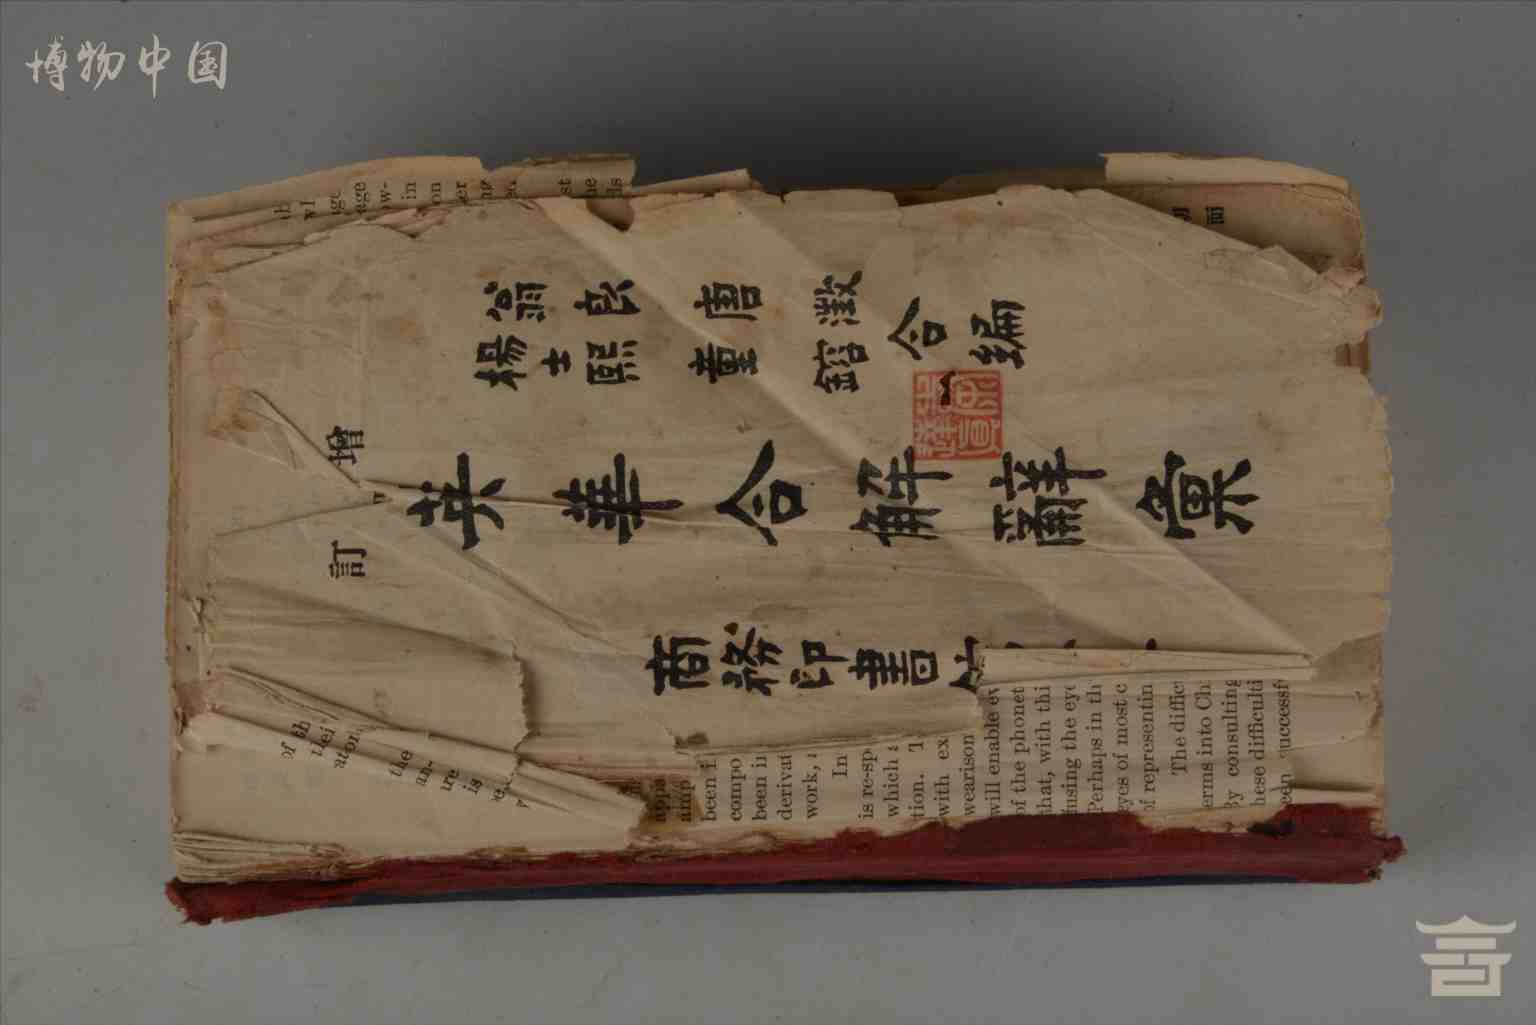 博物中国
翁良 唐澂
楊士熙 童鎔
合編
增訂
英華合解辭彙
商務印書
of th
their
the
is
been i
compo
been in
derivat
work,
In
is re-sp
which
tion. T
with ex
wearison
will enable ev
of the phonet
that, with thi
fusing the eye
Perhaps in th
eyes of most c
of representin
The diffic
erms into Ch
By consulting
hese difficulti
een successf